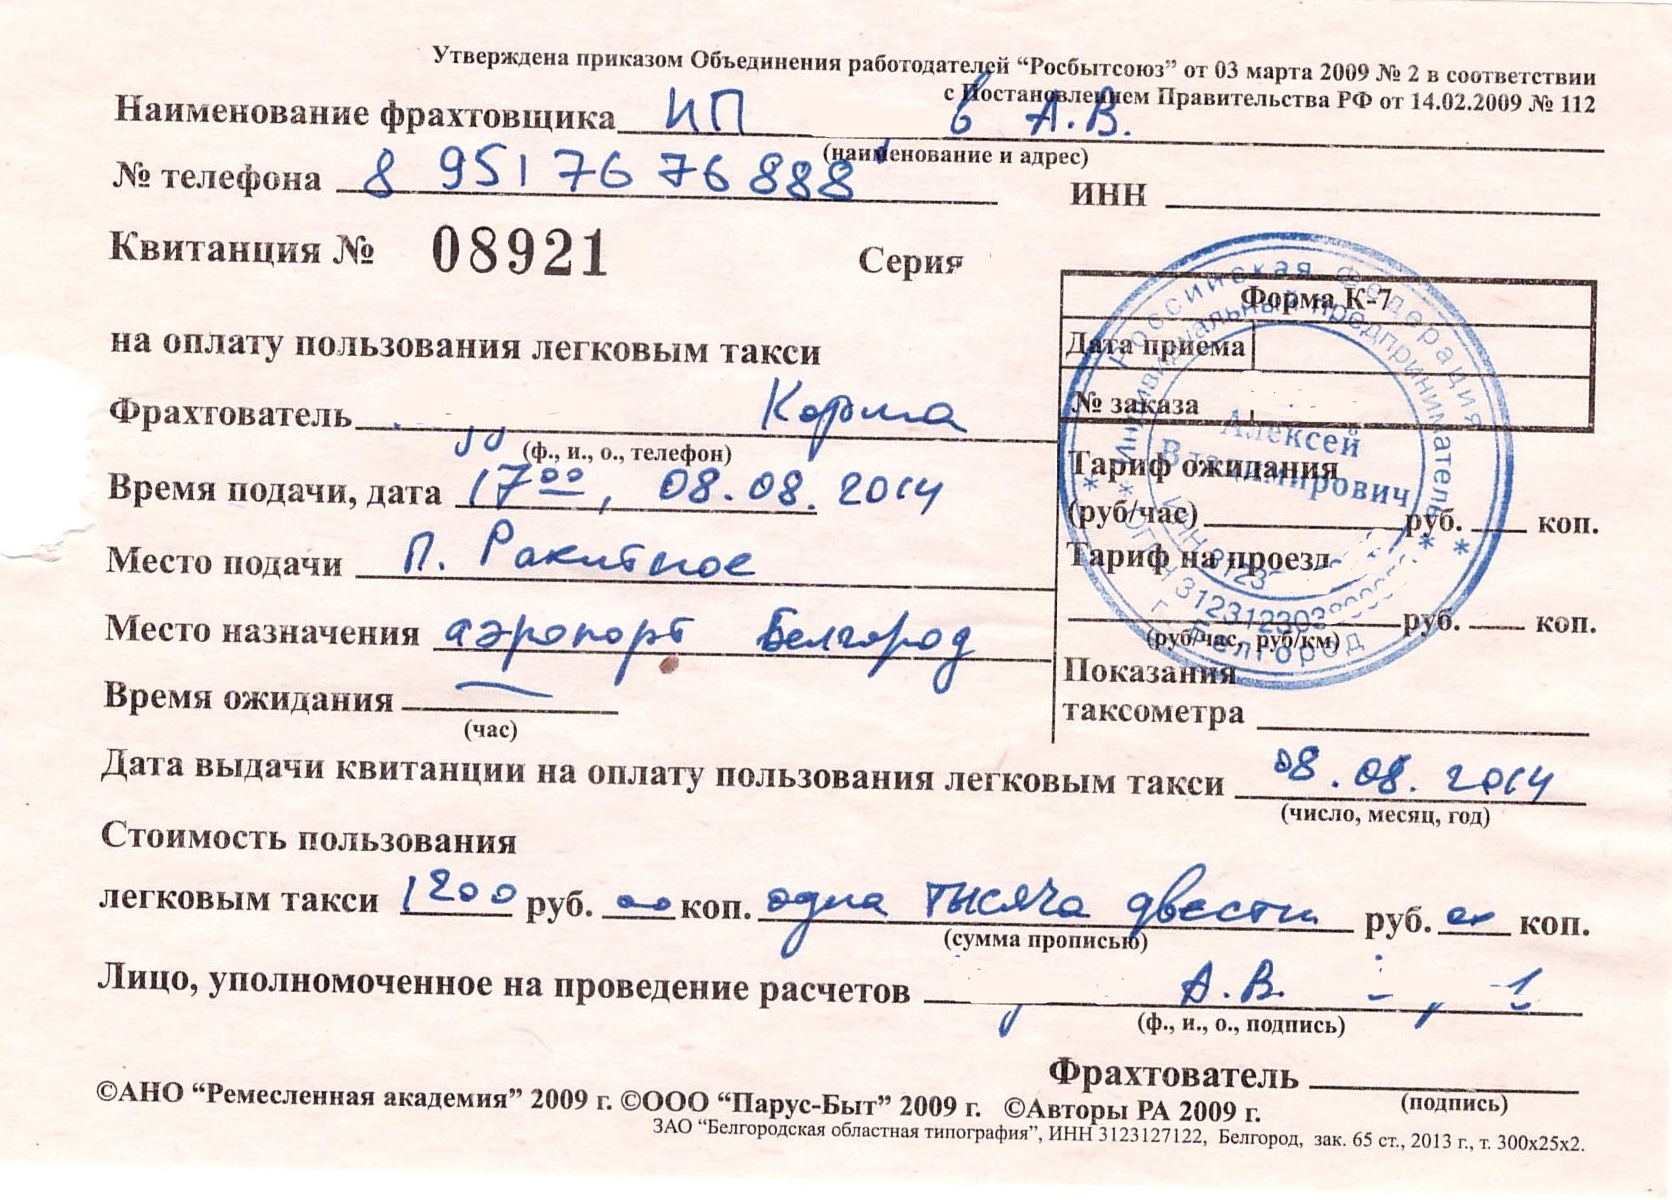 Утверждена приказом Объединения работодателей “Росбытсоюз” от 03 марта 2009 № 2 в соответствии
с Постановлением Правительства РФ от 14.02.2009 № 112
Наименование фрахтовщика ИП в А.В.
(наименование и адрес)
№ телефона 8 951 76 76 888
ИНН
Квитанция № 08921 Серия
Форма К-7
на оплату пользования легковым такси
Дата приема
№ заказа
Фрахтователь Корма
(ф., и., о., телефон)
Время подачи, дата 17 00, 08.08. 2014
Место подачи п. Ракитное
Место назначения аэропорт Белгород
Время ожидания —
(час)
Тариф ожидания
(руб/час) руб. коп.
Тариф на проезд
руб. коп.
(руб/час, руб/км)
Показания
таксометра
Российская Федерация
Индивидуальный предприниматель
Алексей
Владимирович
г. Белгород
Дата выдачи квитанции на оплату пользования легковым такси 08.08. 2014
(число, месяц, год)
Стоимость пользования
легковым такси 1200 руб. 00 коп. одна тысяча двести руб. 00 коп.
(сумма прописью)
Лицо, уполномоченное на проведение расчетов А.В.
(ф., и., о., подпись)
Фрахтователь
(подпись)
©АНО “Ремесленная академия” 2009 г. ©ООО “Парус-Быт” 2009 г. ©Авторы РА 2009 г.
ЗАО “Белгородская областная типография”, ИНН 3123127122, Белгород, зак. 65 ст., 2013 г., т. 300х25х2.